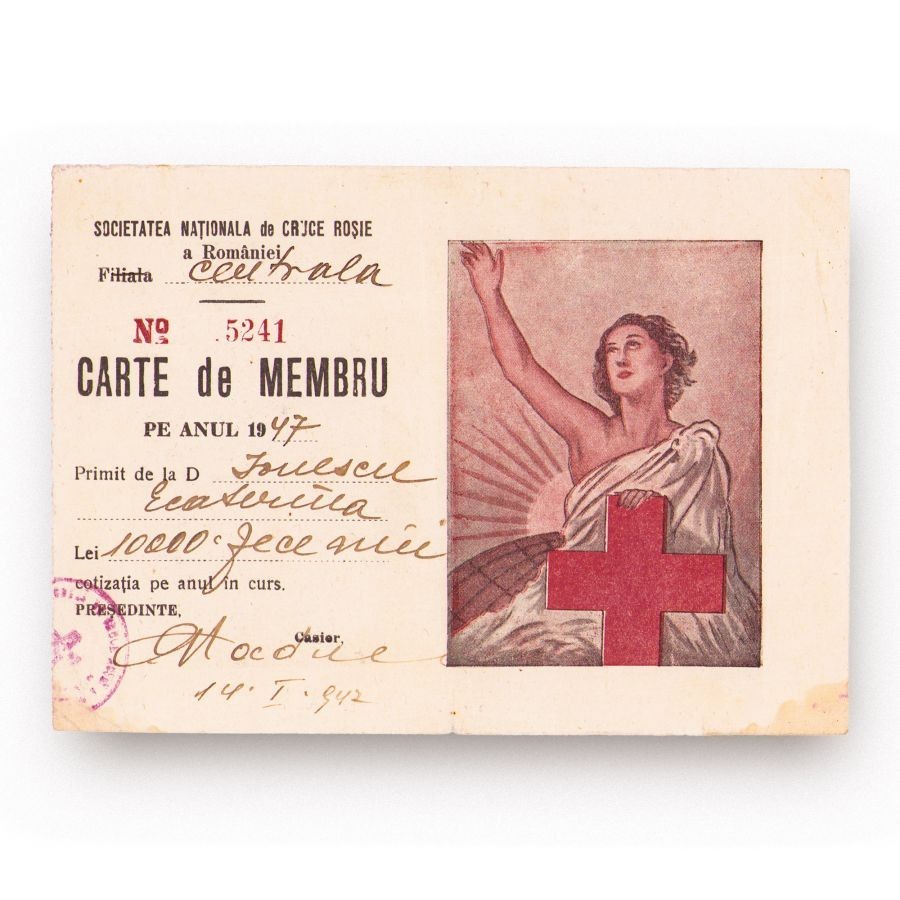 SOCIETATEA NAȚIONALA de CRUCE ROȘIE
a României
Filiala centrala
Nº 5241
CARTE de MEMBRU
PE ANUL 1947
Primit de la D Ionescu
Ecaterina
Lei 10000 zece mii
cotizația pe anul în curs.
PREȘEDINTE,
Casier,
14. I. 947